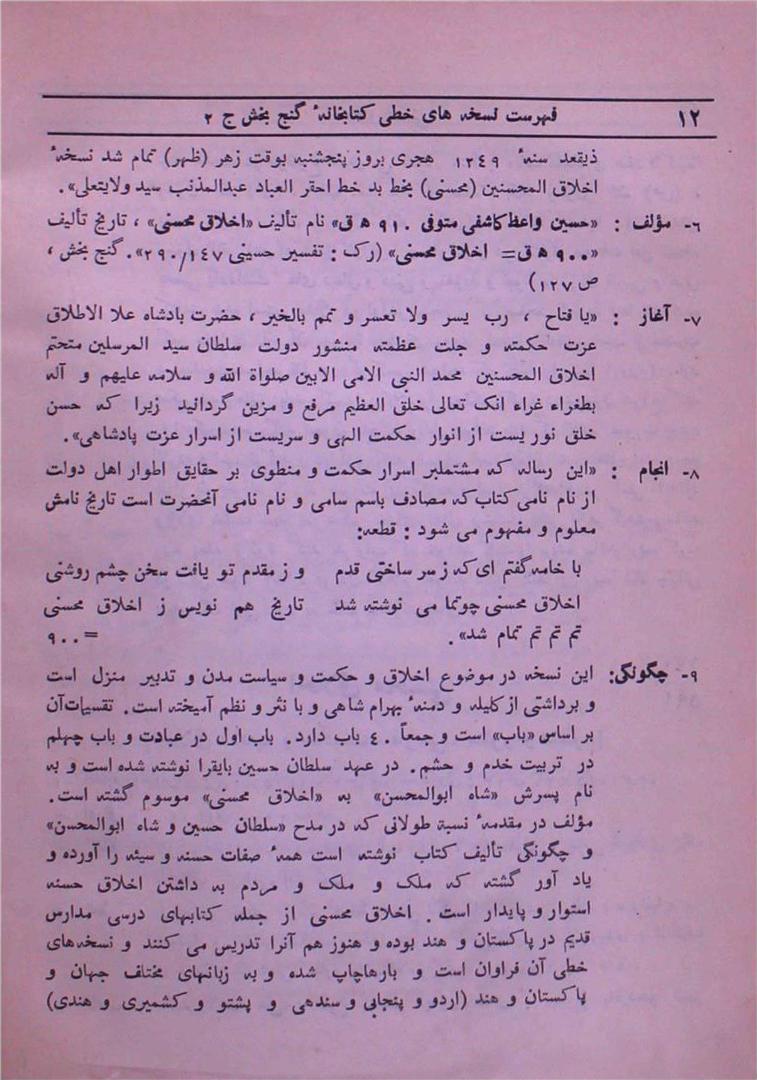 ۱۲ فهرست نسخه های خطی کتابخانهٔ گنج بخش ج ۲
ذیقعد سنهٔ ۱۲۴۹ هجری بروز پنجشنبه بوقت زهر (ظهر) تمام شد نسخهٔ
اخلاق المحسنین (محسنی) بخط بد خط احقر العباد عبدالمذنب سید ولایتعلی».
۶- مؤلف : «حسین واعظ کاشفی متوفی ۹۱۰ ه ق» نام تألیف «اخلاق محسنی» ، تاریخ تألیف
«۹۰۰ ه ق= اخلاق محسنی» (رک : تفسیر حسینی ۲۹۰/۱۴۷». گنج بخش ،
ص ۱۲۷)
۷- آغاز : «یا فتاح ، رب یسر ولا تعسر و تمم بالخیر ، حضرت بادشاه علا الاطلاق
عزت حکمته و جلت عظمته منشور دولت سلطان سید المرسلین متحتم
اخلاق المحسنین محمد النبی الامی الابین صلواة الله و سلامه علیهم و آله
بطغراء غراء انک تعالی خلق العظیم مرفع و مزین گردانید زیرا که حسن
خلق نور یست از انوار حکمت الهی و سریست از اسرار عزت پادشاهی».
۸- انجام : «این رساله که مشتملبر اسرار حکمت و منطوی بر حقایق اطوار اهل دولت
از نام نامی کتاب که مصادف باسم سامی و نام نامی آنحضرت است تاریخ نامش
معلوم و مفهوم می شود : قطعه:
با خامه گفتم ای که ز سر ساختی قدم و ز مقدم تو یافت سخن چشم روشنی
اخلاق محسنی چوتما می نوشته شد تاریخ هم نویس ز اخلاق محسنی
تم تم تم تم تمام شد». =۹۰۰
۹- چگونگی: این نسخه در موضوع اخلاق و حکمت و سیاست مدن و تدبیر منزل است
و برداشتی از کلیله و دمنهٔ بهرام شاهی و با نثر و نظم آمیخته است . تقسیات آن
بر اساس «باب» است و جمعاً ۴۰ باب دارد. باب اول در عبادت و باب چهلم
در تربیت خدم و حشم. در عهد سلطان حسین بایقرا نوشته شده است و به
نام پسرش «شاه ابوالمحسن» به «اخلاق محسنی» موسوم گشته است.
مؤلف در مقدمهٔ نسبة طولانی که در مدح «سلطان حسین و شاه ابوالمحسن»
و چگونگی تألیف کتاب نوشته است همهٔ صفات حسنه و سیئه را آورده و
یاد آور گشته که ملک و ملک و مردم به داشتن اخلاق حسنه
استوار و پایدار است . اخلاق محسنی از جمله کتابهای درسی مدارس
قدیم در پاکستان و هند بوده و هنوز هم آنرا تدریس می کنند و نسخه‌های
خطی آن فراوان است و بارهاچاپ شده و به زبانهای مختلف جهان و
پاکستان و هند (اردو و پنجابی و سندهی و پشتو و کشمیری و هندی)